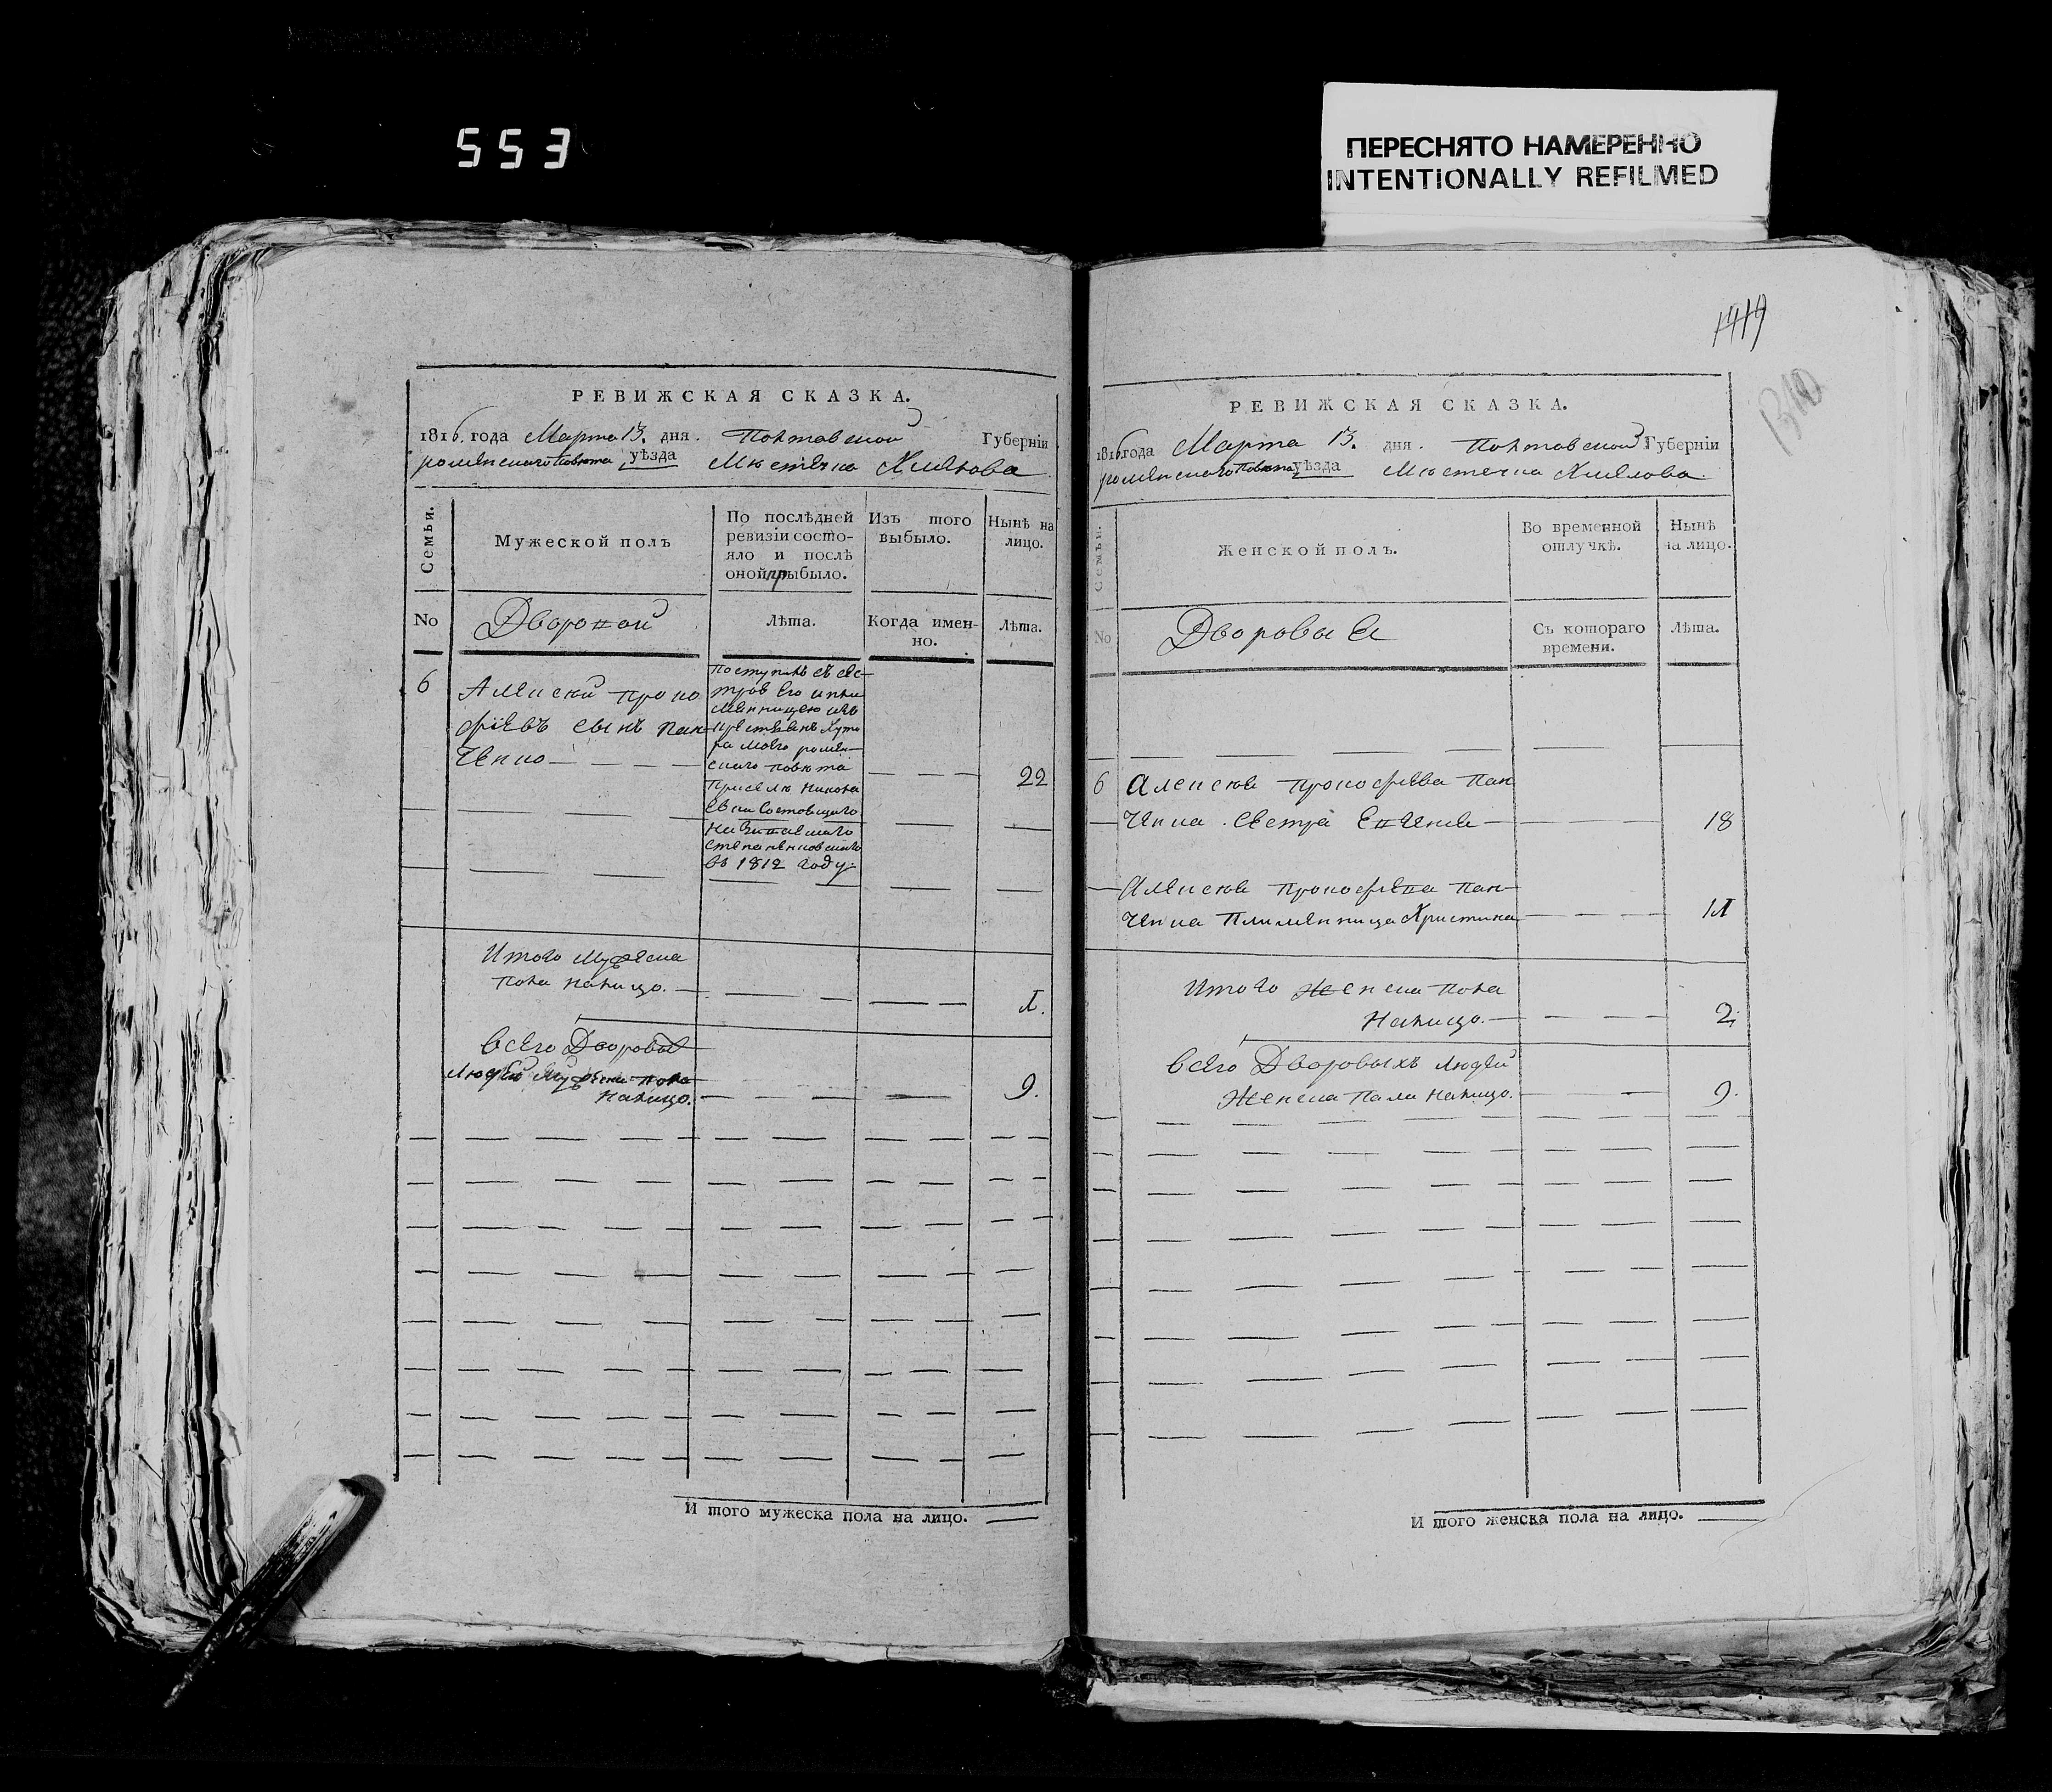 553
ПЕРЕСНЯТО НАМЕРЕННО
INTENTIONALLY REFILMED
РЕВИЖСКАЯ СКАЗКА.
1816. года Марта 13. дня. Полтавской Губерніи
роменского повѣта уѣзда Мѣстечка Хмѣлова
Семьи.
Мужеской полъ
По послѣдней
ревизіи состо-
яло и послѣ
оной прибыло.
Изъ того
выбыло.
Нынѣ на
лицо.
No
Дворовои
Лѣта.
Когда имен-
но.
Лѣта.
6
Алексѣй Проко
фіевъ сынъ Пан
ченко
Поступилъ съ сес-
трою его и пле
менницею изъ
крестьянъ хуто
ра моего ромен-
ского повѣта
въ 1812 году.
22
Итого мужеска
пола налицо.
1.
Всего Дворовые
людей мужеска пола
налицо.
9.
И того мужеска пола на лицо.
1419
РЕВИЖСКАЯ СКАЗКА.
1816 года Марта 13. дня. Полтавской Губерніи
роменского повѣта уѣзда Мѣстечка Хмелова.
Семьи.
Женской полъ.
Во временной
отлучкѣ.
Нынѣ
на лицо.
No
Дворовые
Съ котораго
времени.
Лѣта.
6
Алексея Прокофьева Пан
ченка сестра
18
Алексея Прокофьева Пан
ченка племенница Христина
11
Итого женска пола
налицо.
2.
Всего Дворовыхъ людей
женска пола налицо.
9.
И того женска пола на лицо.